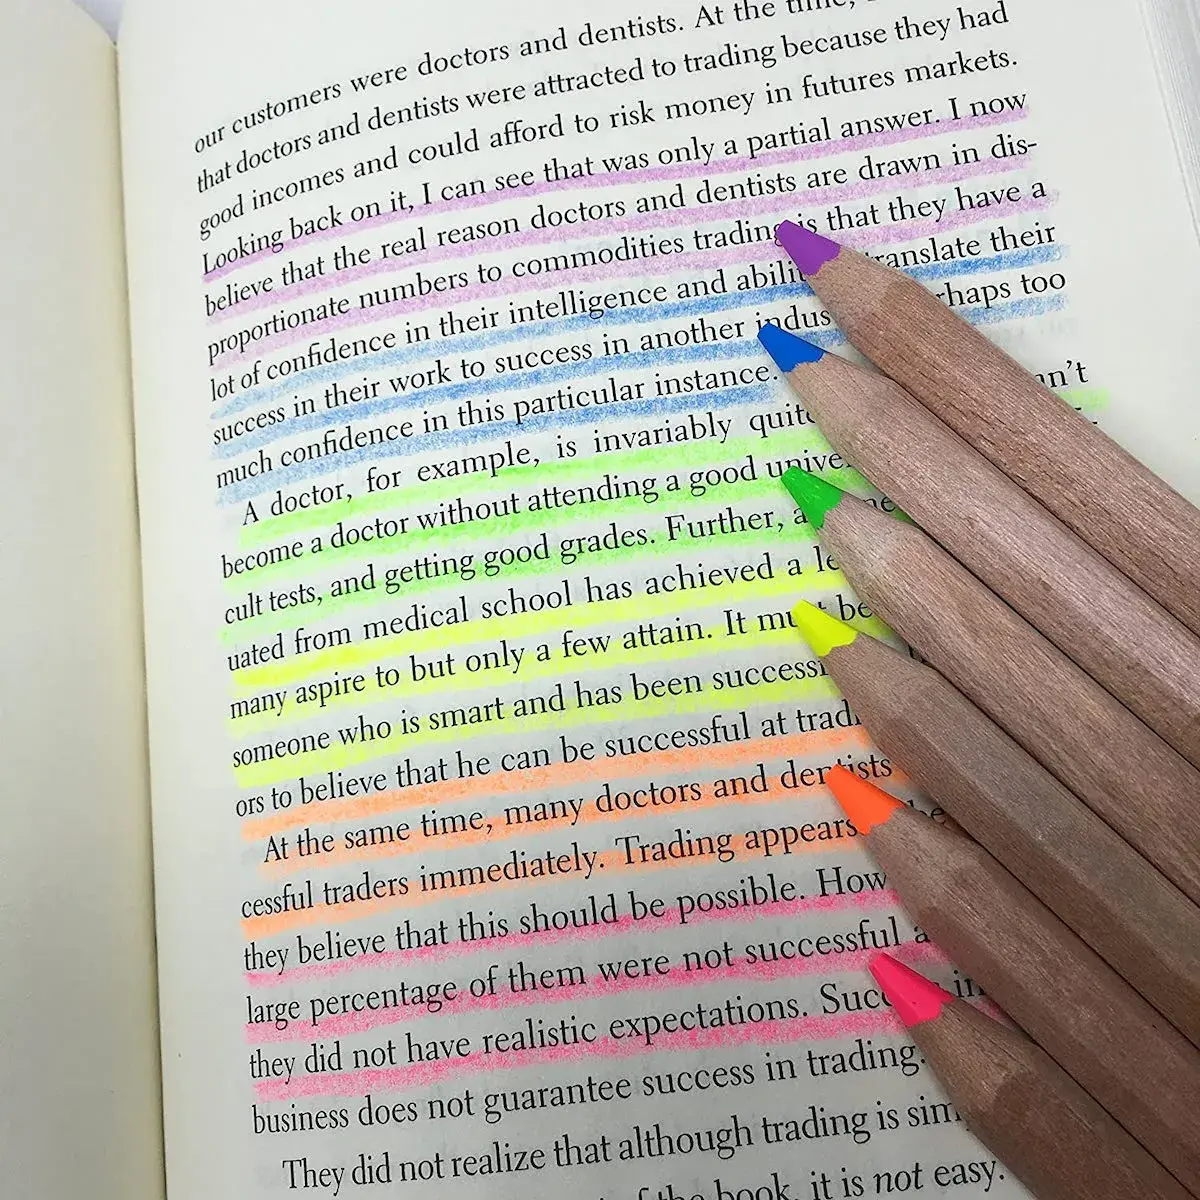 our customers were doctors and dentists. At the time,
that doctors and dentists were attracted to trading because they had
good incomes and could afford to risk money in futures markets.
Looking back on it, I can see that was only a partial answer. I now
believe that the real reason doctors and dentists are drawn in dis-
proportionate numbers to commodities trading is that they have a
lot of confidence in their intelligence and translate their
success in their work to success in another haps too
much confidence in this particular instance.
A doctor, for example, is invariably n't
become a doctor without attending a good
cult tests, and getting good grades. Further,
uated from medical school has achieved a
many aspire to but only a few attain. It be
someone who is smart and has been
ors to believe that he can be successful at
At the same time, many doctors and dentists
cessful traders immediately. Trading appears
they believe that this should be possible. How
large percentage of them were not successful
they did not have realistic expectations. in
business does not guarantee success in trading.
They did not realize that although trading is
the book, it is not easy.